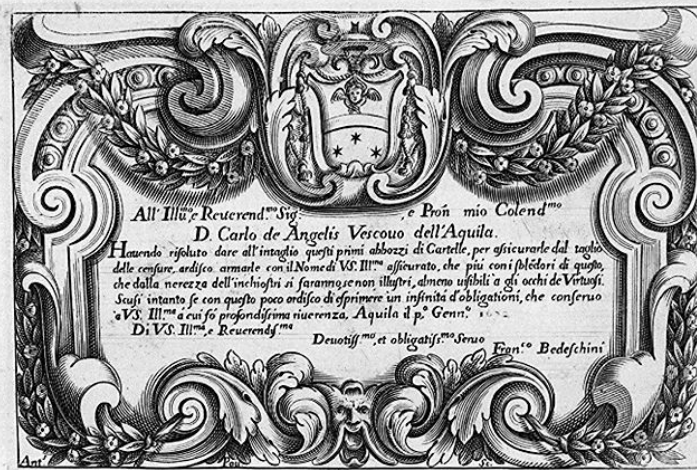 All' Illu.mo e Reuerend.mo Sig: e Prōn mio Colend.mo
D. Carlo de Angelis Vescouo dell'Aquila.
Hauendo risoluto dare all'intaglio questi primi abbozzi di Cartelle, per assicurarle dal taglio
delle censure, ardisco armarle con il Nome di VS. Ill.ma assicurato, che più con i splēdori di questo,
che dalla nerezza dell'inchiostri si faranno, se non illustri, almeno uisibili a gli occhi de Virtuosi.
Scusi intanto se con questo poco ordisco di esprimere un infinità d'obligationi, che conseruo
a VS. Ill.ma a cui fò profondissima riuerenza, Aquila il p.o Genn.o
Di VS. Ill.ma, e Reuerendiss.ma
Deuotiss.mo, et obligatiss.mo Seruo
Fran.co Bedeschini
Ant.